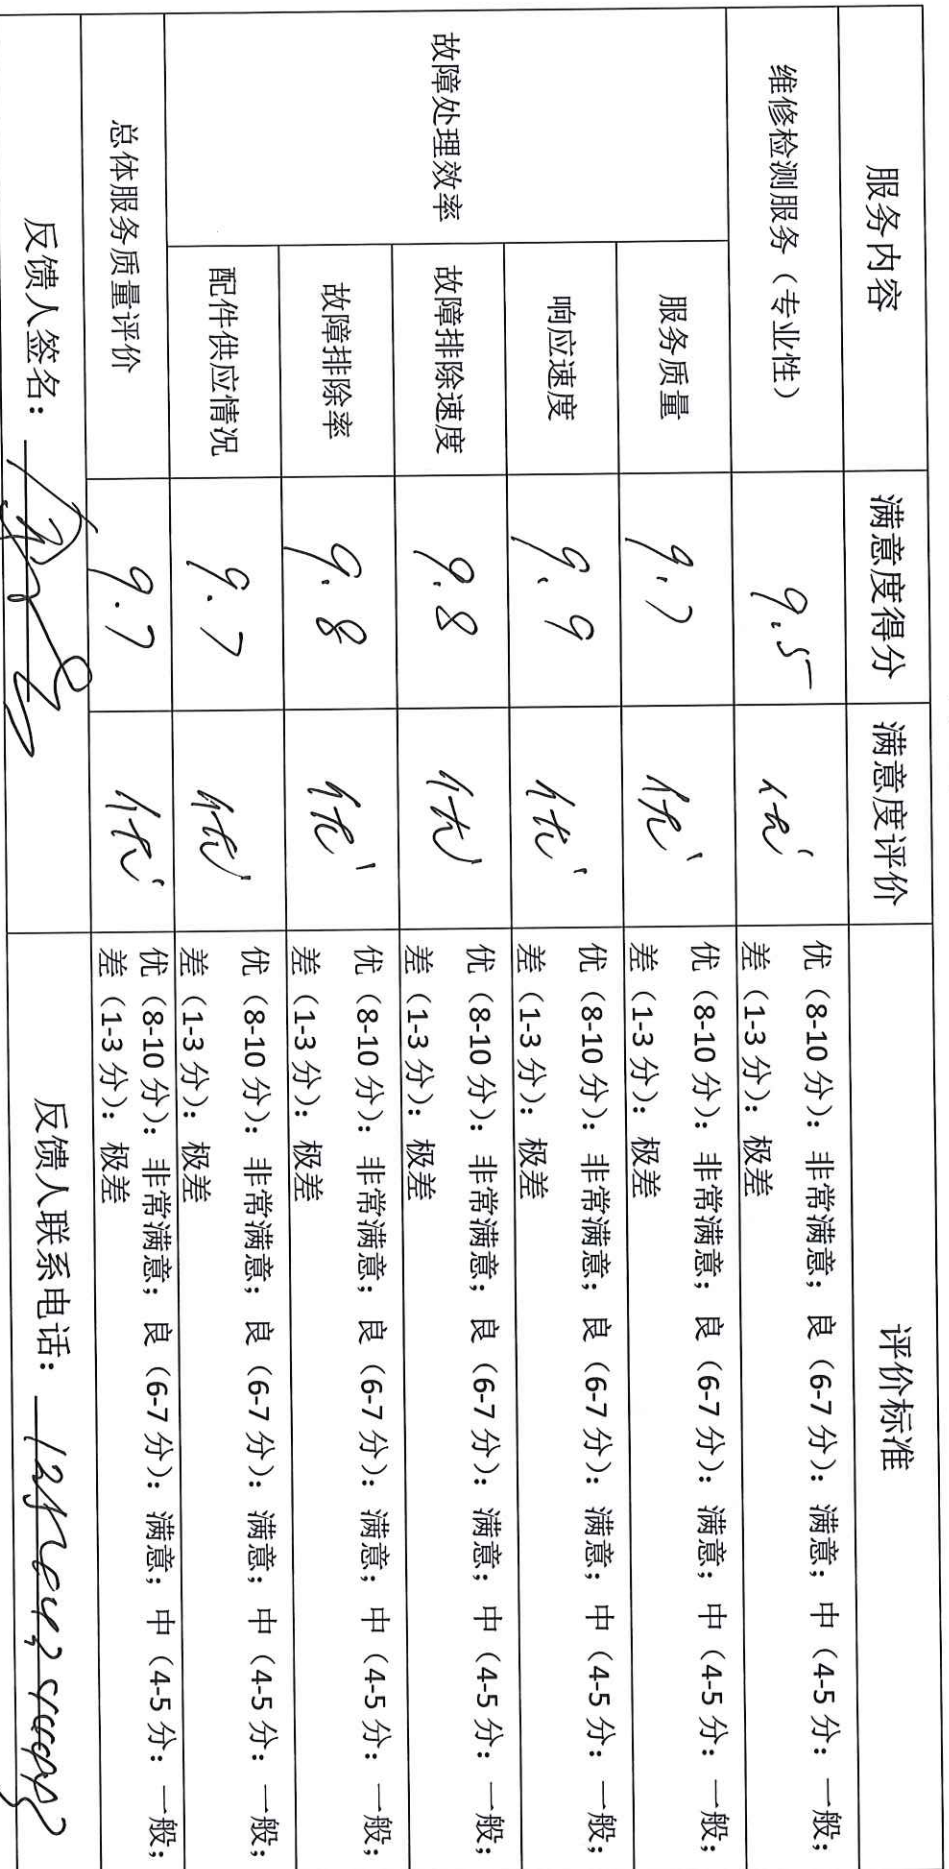 服务内容 满意度得分 满意度评价 评价标准
维修检测服务（专业性） 9.5 优 优（8-10 分）：非常满意；良（6-7 分）：满意；中（4-5 分：一般；
差（1-3 分）：极差
故障处理效率 服务质量 9.7 优 优（8-10 分）：非常满意；良（6-7 分）：满意；中（4-5 分：一般；
差（1-3 分）：极差
响应速度 9.9 优 优（8-10 分）：非常满意；良（6-7 分）：满意；中（4-5 分：一般；
差（1-3 分）：极差
故障排除速度 9.8 优 优（8-10 分）：非常满意；良（6-7 分）：满意；中（4-5 分：一般；
差（1-3 分）：极差
故障排除率 9.8 优 优（8-10 分）：非常满意；良（6-7 分）：满意；中（4-5 分：一般；
差（1-3 分）：极差
配件供应情况 9.7 优 优（8-10 分）：非常满意；良（6-7 分）：满意；中（4-5 分：一般；
差（1-3 分）：极差
总体服务质量评价 9.7 优 优（8-10 分）：非常满意；良（6-7 分）：满意；中（4-5 分：一般；
差（1-3 分）：极差
反馈人签名： 反馈人联系电话：